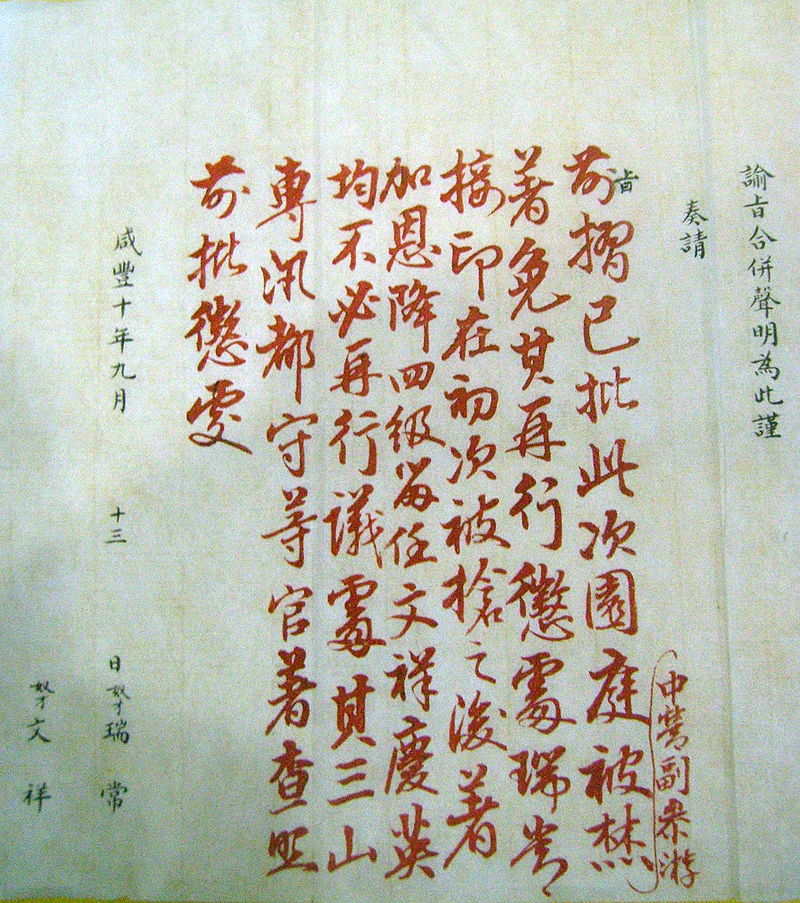 諭旨合併聲明為此謹
奏請
旨
中營副參游
前摺已批此次園庭被焚
著免其再行懲處瑞常
接印在初次被搶之後著
加恩降四級留任文祥慶英
均不必再行議處其三山
專汛都守等官著查照
前批懲處
咸豐十年九月 十三 日奴才瑞 常
奴才文 祥